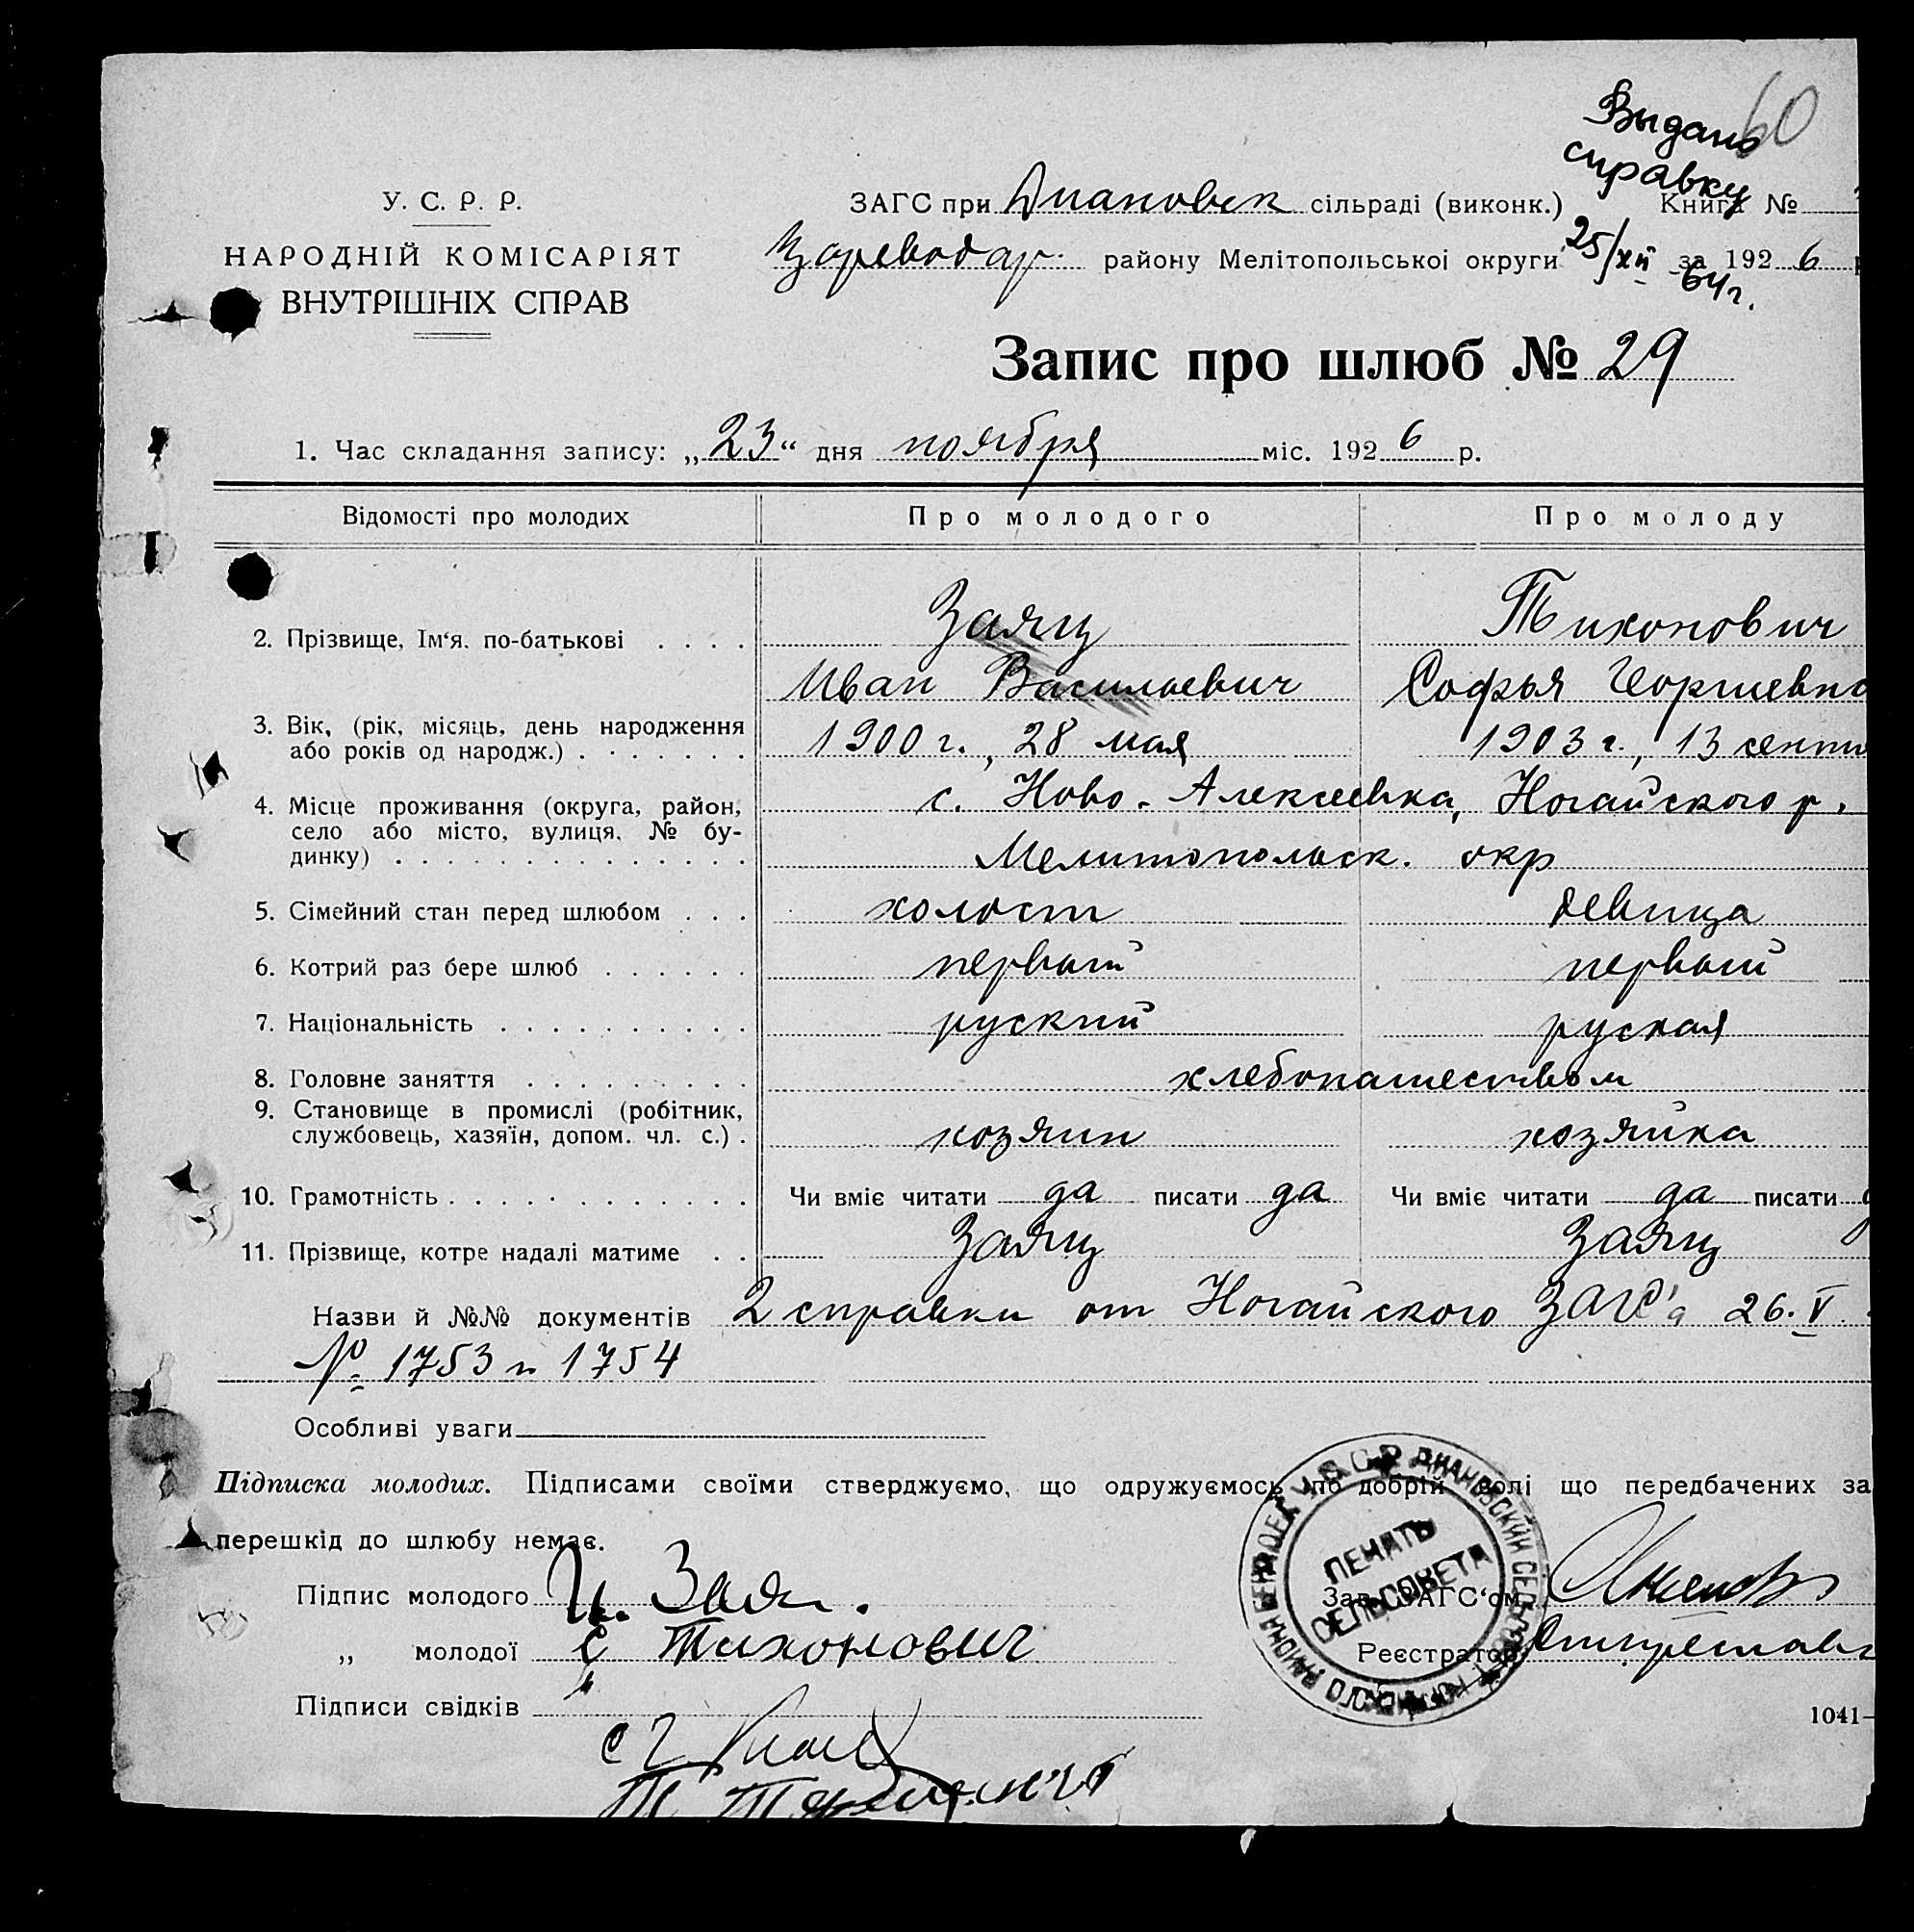 60
Выдано
справку
25/XII 64г.
У. С. Р. Р.
НАРОДНІЙ КОМІСАРІЯТ
ВНУТРІШНІХ СПРАВ
ЗАГС при Диановск сільраді (виконк.) Книга №
района Мелітопольської округи за 1926
Запис про шлюб № 29
1. Час складання запису: „23“ дня ноября міс. 1926 р.
Відомості про молодих Про молодого Про молоду
2. Прізвище, Ім‘я, по-батькові Заяц Тихонович
Иван Васильевич Софья Георгиевна
3. Вік, (рік, місяць, день народження
або років од народж.) 1900 г., 28 мая 1903 г., 13 сентя
4. Місце проживання (округа, район, с. Ново-Алексеевка, Ногайского р.
село або місто, вулиця, № бу-
динку) Мелитопольск. окр
5. Сімейний стан перед шлюбом холост девица
6. Котрий раз бере шлюб первый первый
7. Національність руский руская
8. Головне заняття хлебопашеством
9. Становище в промислі (робітник,
службовець, хазяїн, допом. чл. с.) хозяин хозяйка
10. Грамотність Чи вміє читати да писати да Чи вміє читати да писати
11. Прізвище, котре надалі матиме Заяц Заяц
Назви й №№ документів 2 справки от Ногайского ЗАГС'а 26.V.
№ 1753 и 1754
Особливі уваги
Підписка молодих. Підписами своїми стверджуємо, що одружуємось по добрій волі що передбачених за
перешкід до шлюбу немає.
Підпис молодого И. Заяц.
„ молодої С Тихонович
Підписи свідків
Зав. ЗАГС‘ом
Реєстратор
ПЕЧАТЬ
СЕЛЬСОВЕТА
У.С.С.Р. ДИАНОВСКИЙ СЕЛЬСОВЕТ
1041—